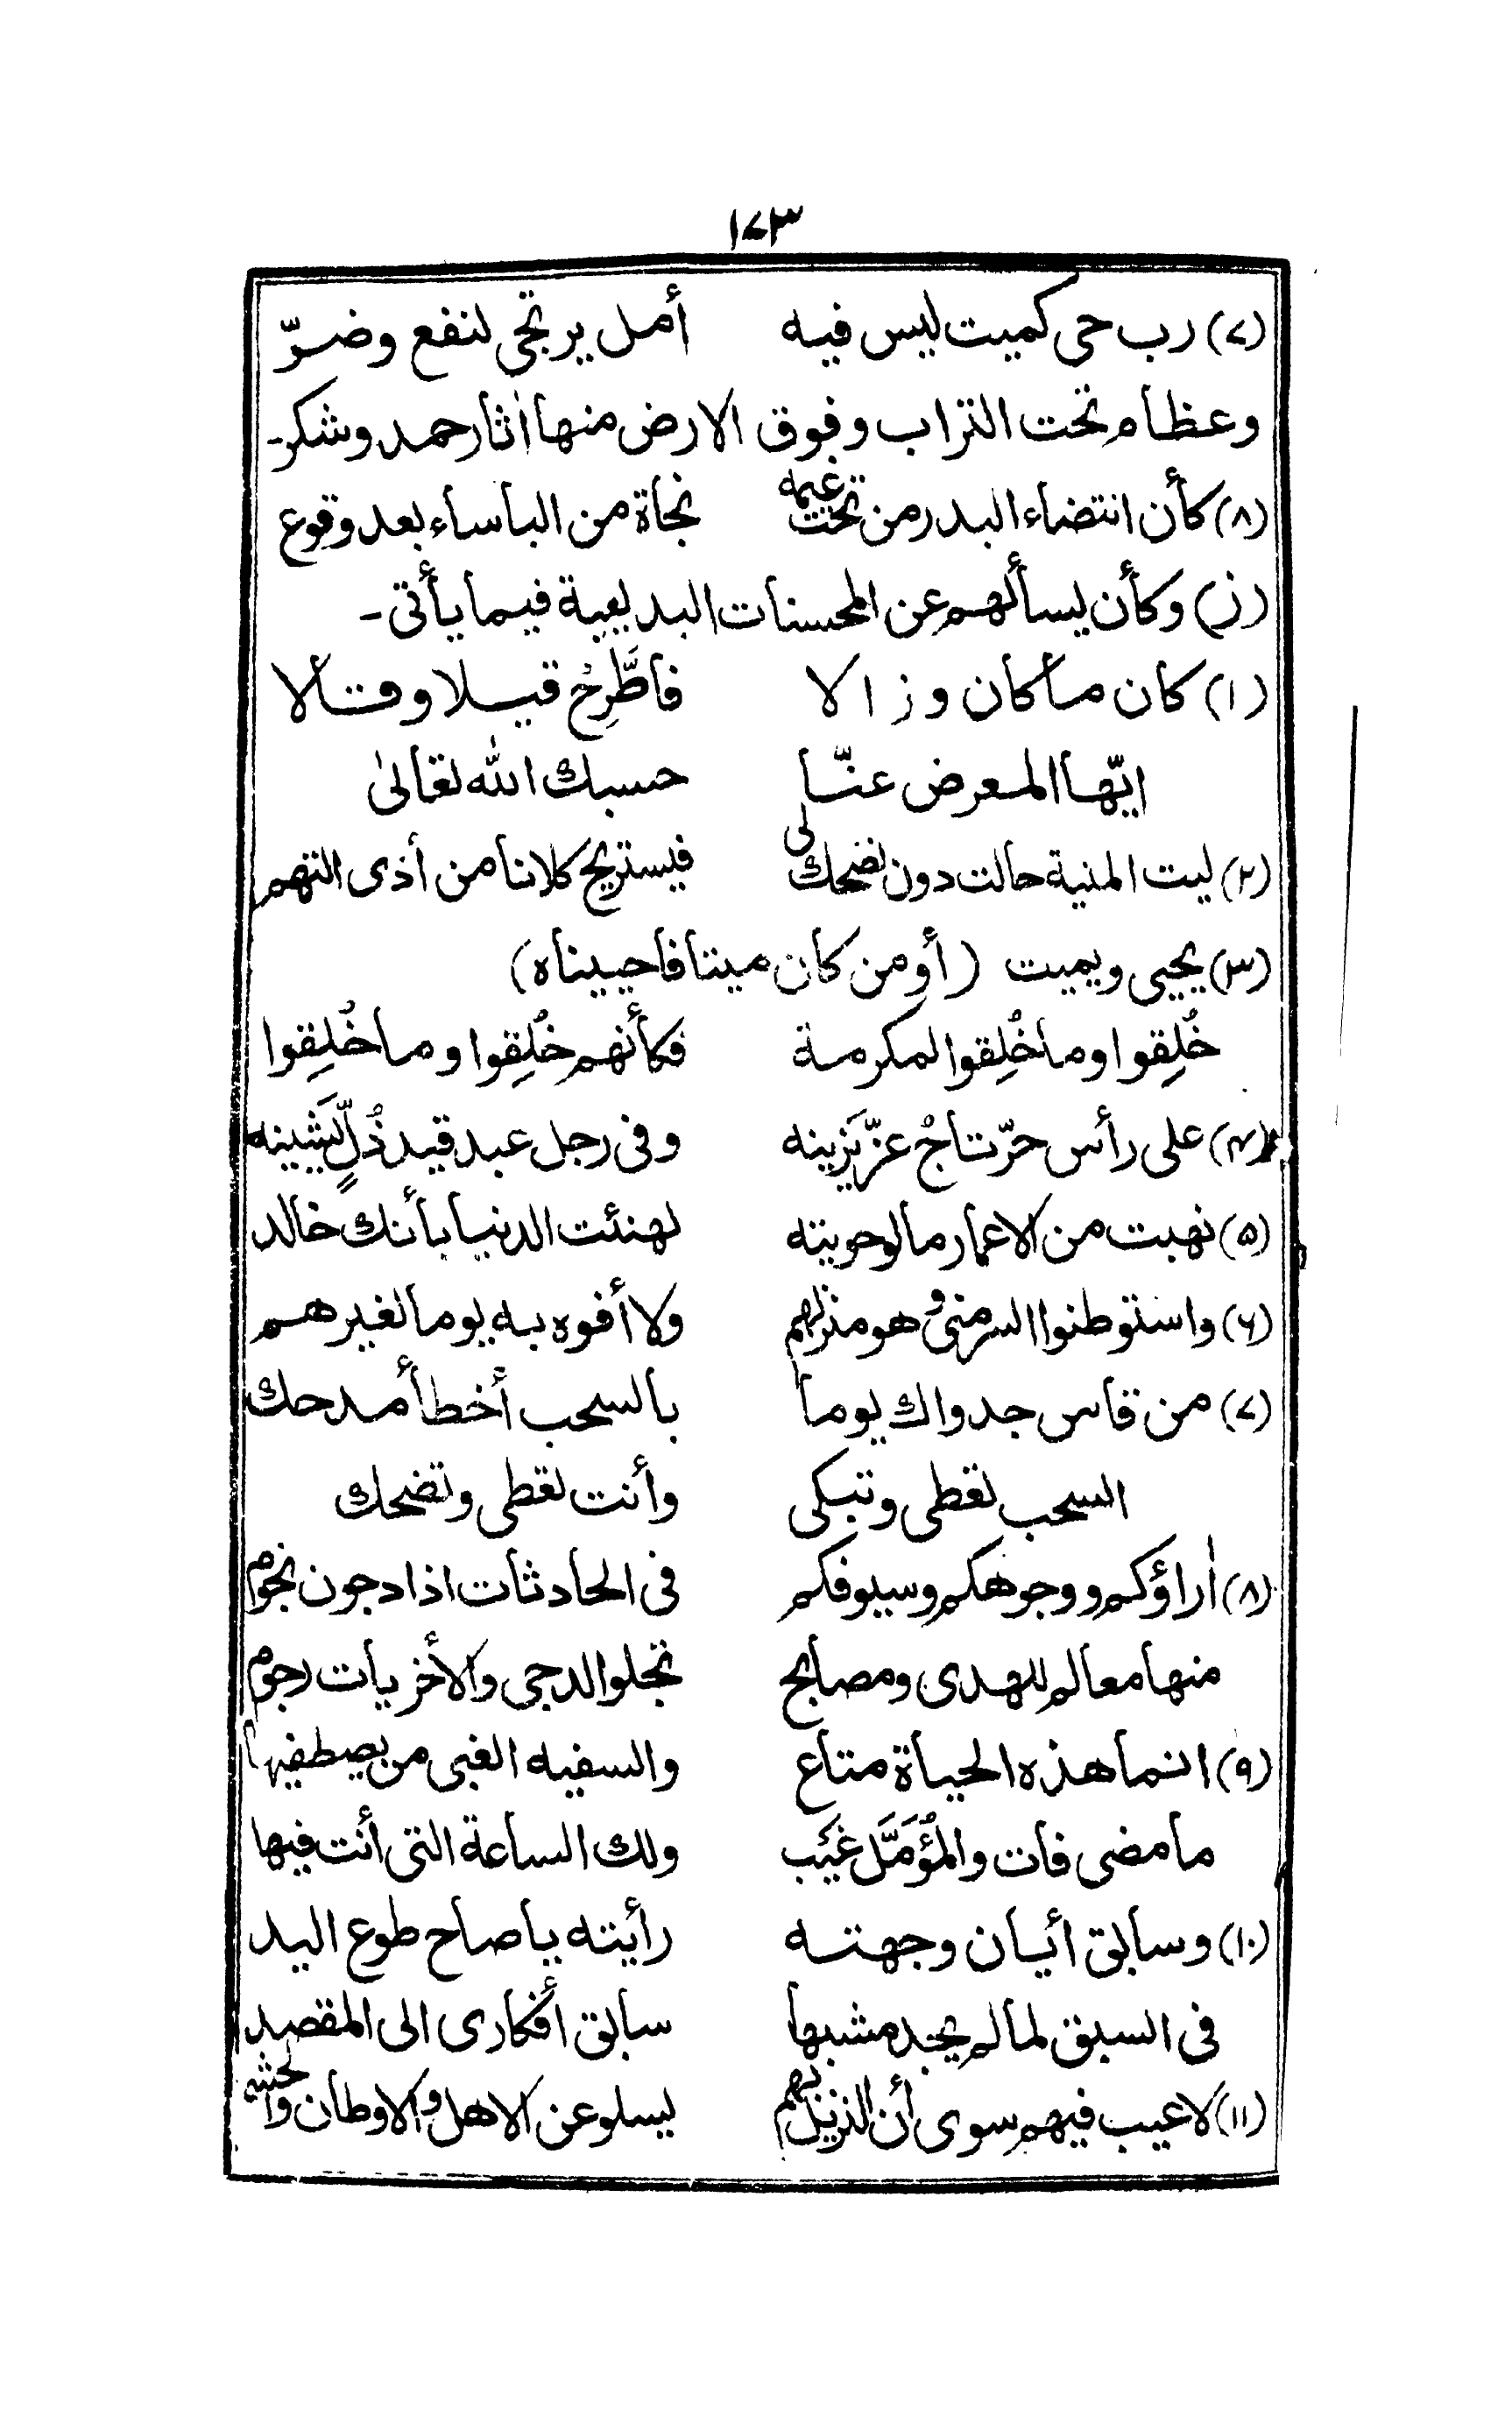 ١٧٣
(٧) رب حي كميت ليس فيه أمل يرتجى لنفع وضرّ
وعظام تحت التراب وفوق الارض منها اٰثار حمد وشكر-
(٨) كأن انتضاء البدر من تحت غيمه نجاة من البأساء بعد وقوع
(ز) وكأن يسألهم عن المحسنات البديعية فيما يأتى -
(١) كان ما كان وزالا فاطَّرِحْ قيلا وقالا
ايّها المعرض عنّا حسبك الله تعالىٰ
(٢) ليت المنية حالت دون نصحك لى فيستريح كلانا من أذى التهم
(٣) يحيى ويميت (أو من كان ميتا فاحييناه)
خُلِقوا وما خُلِقوا لمكرمة فكأنهم خُلِقوا وما خُلِقوا
(٤) على رأس حرّ تاجُ عزّ يَزينه وفى رجل عبد قيد ذُلٍّ يَشينه
(٥) نهبت من الاعمار ما لو حويته لهنئت الدنيا بأنك خالد
(٦) واستوطنوا السر منى وهو منزلهم ولا أفوه به يوما لغيرهم
(٧) من قاس جدواك يوما بالسحب أخطأ مدحك
السحب تعطى وتبكى وأنت تعطى وتضحك
(٨) اٰراؤكم ووجوهكم وسيوفكم فى الحادثات اذا دجون نجوم
منها معالم للهدى ومصابح تجلو الدجى والأخريات رجوم
(٩) انما هذه الحياة متاع والسفيه الغبى من يصطفيها
ما مضى فات والمُؤَمَّل غَيب ولك الساعة التى أنت فيها
(١٠) وسابق أيان وجهته رأيته يا صاح طوع اليد
فى السبق لما لم يجد مشبها سابق أفكارى الى المقصد
(١١) لا عيب فيهم سوى أن النزيل بهم يسلو عن الاهل والاوطان والحشم